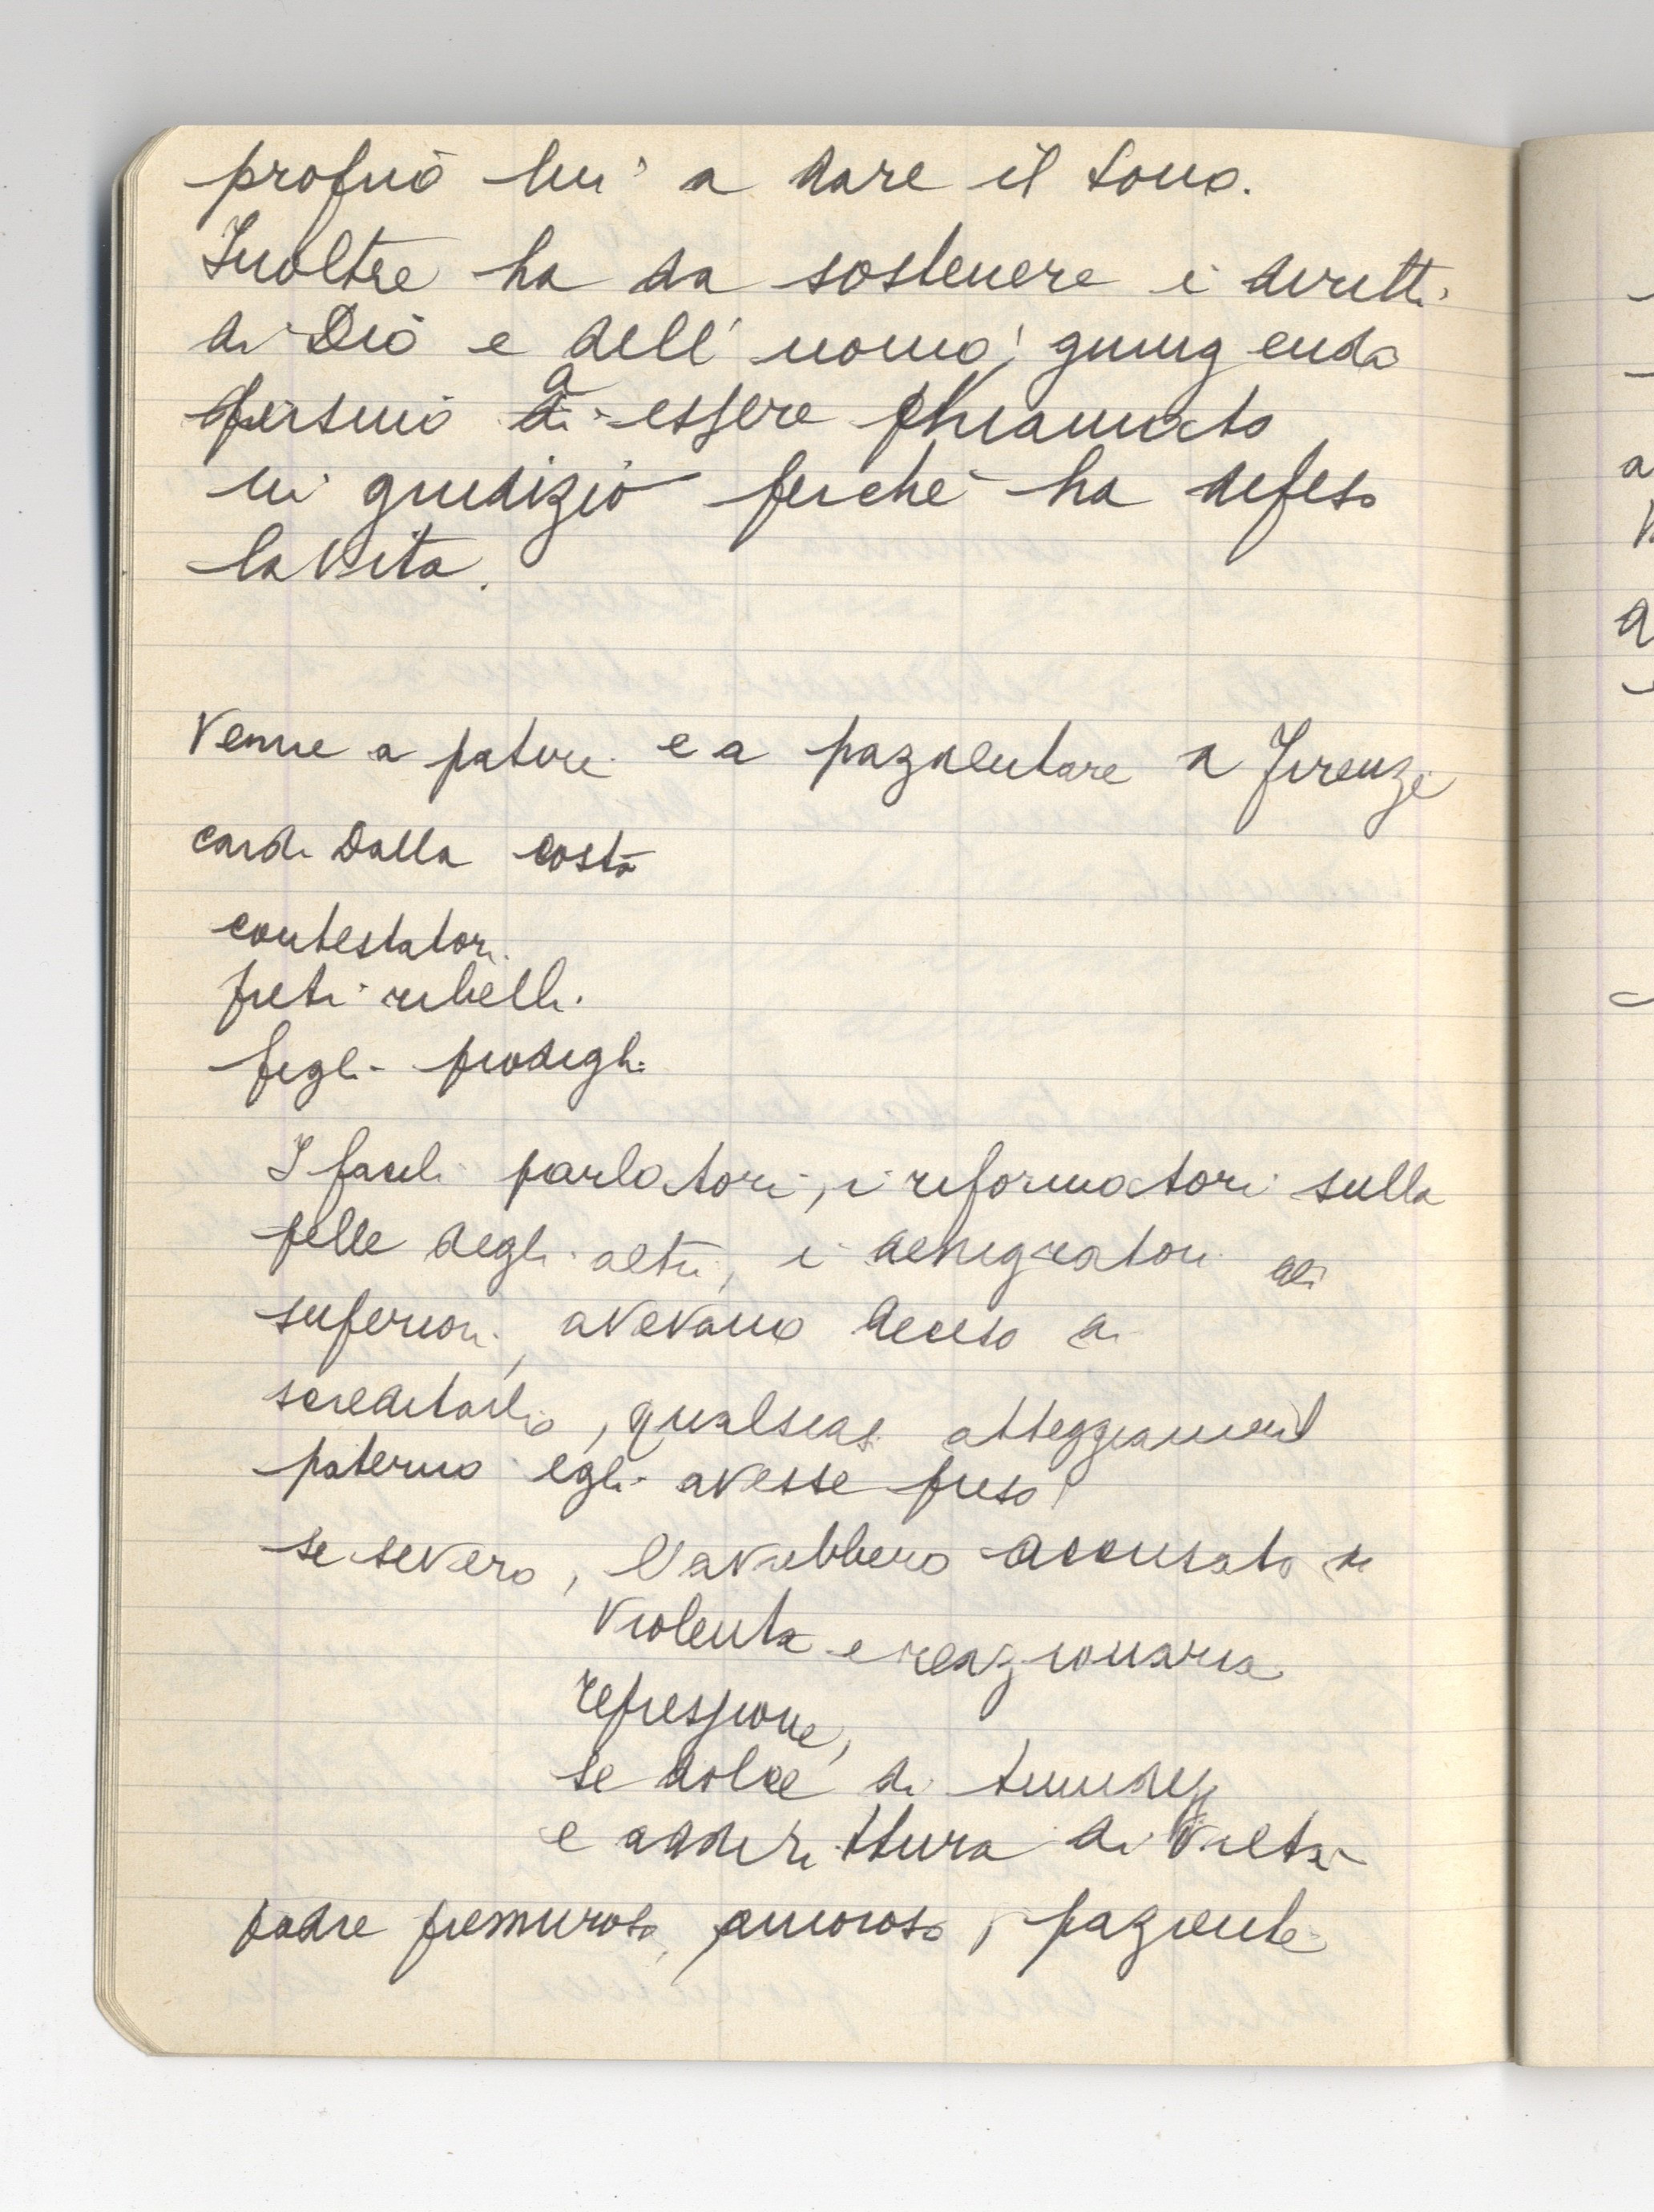 proprio lui a dare il tono.
Inoltre ha da sostenere i diritti
di Dio e dell'uomo, giungendo
persino a essere chiamato
in giudizio perché ha difeso
la vita.
Venne a patire e a pazientare a Firenze
card. Dalla Costa
contestatori
preti ribelli
figli prodighi
I facili parlatori, i riformatori sulla
pelle degli altri, i denigratori dei
superiori, avevano deciso di
screditarlo, qualsiasi atteggiamento
paterno egli avesse preso:
se severo, l'avrebbero accusato di
violenta e reazionaria
repressione,
se dolce di timidezza
e addirittura di viltà
padre premuroso, amoroso, paziente